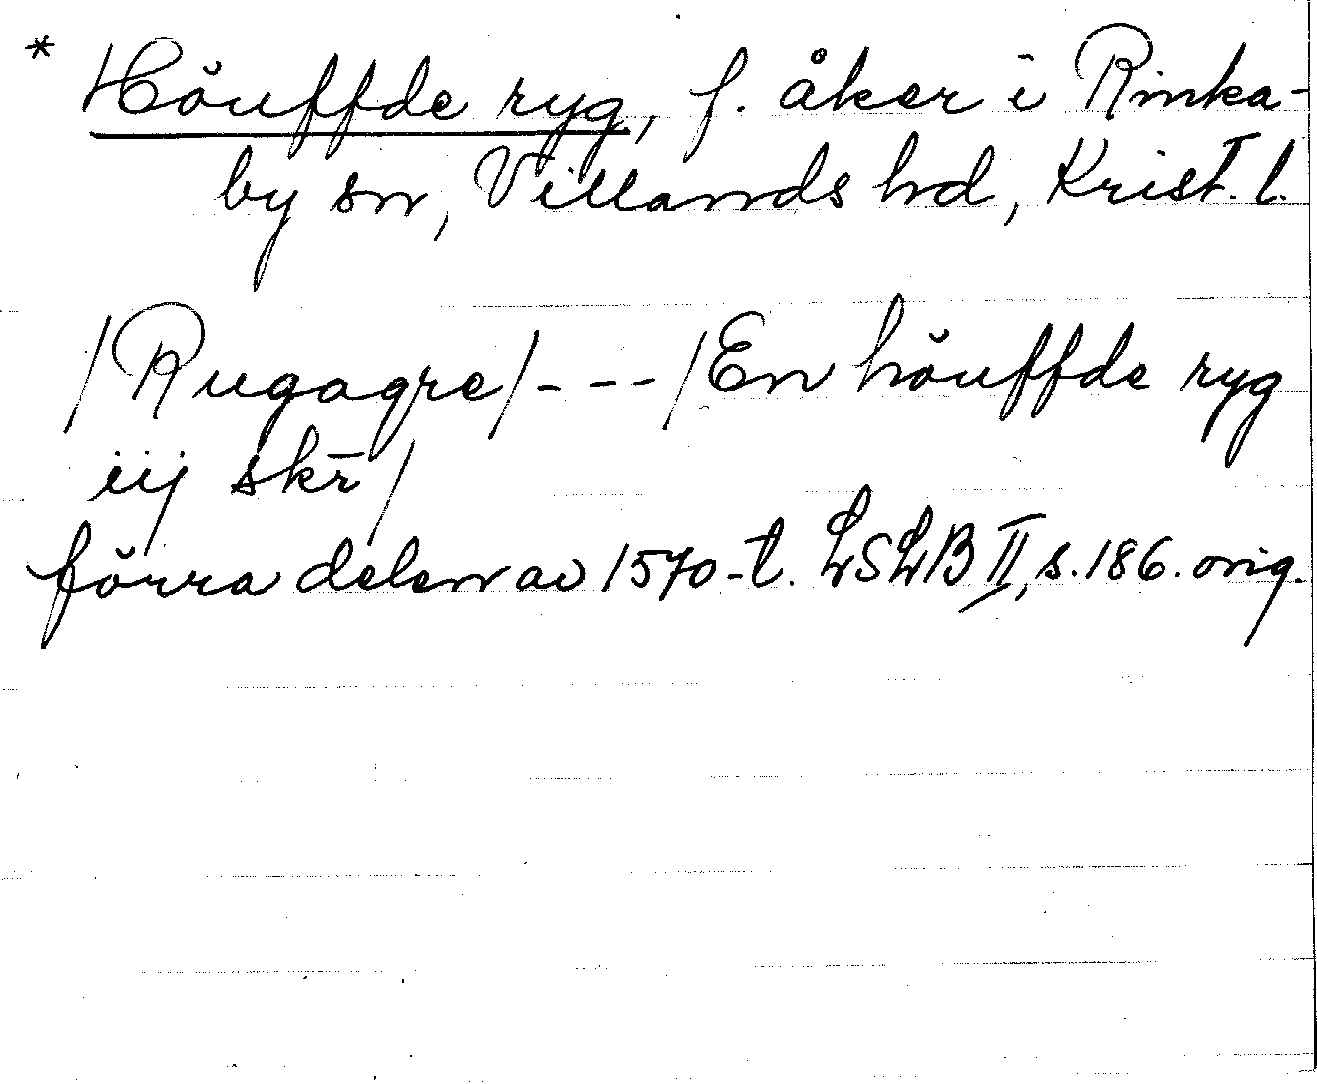 * Höuffde ryg, f. åker i Rinka-
by sn, Villands hd, Krist. l.
/Rugagre/- - - /En höuffde ryg
iij skr̄/
förra delen av 1570-t. LSLB II, s. 186. orig.